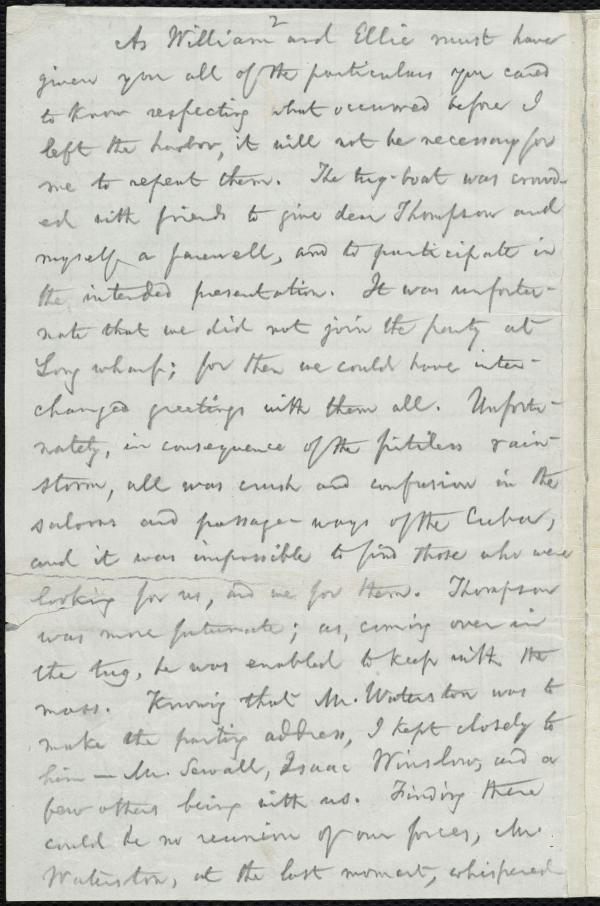 2
As William and Ellie must have
given you all of the particulars you cared
to know respecting what occurred before I
left the harbor, it will not be necessary for
me to repeat them. The tug-boat was crowd-
ed with friends to give dear Thompson and
myself a farewell, and to participate in
the intended presentation. It was unfortu-
nate that we did not join the party at
Long wharf; for then we could have inter-
changed greetings with them all. Unfortu-
nately, in consequence of the pitiless rain-
storm, all was crush and confusion in the
saloons and passage-ways of the Cuba,
and it was impossible to find those who were
looking for us, and we for them. Thompson
was more fortunate; as, coming over in
the tug, he was enabled to keep with the
mass. Knowing that Mr. Waterston was to
make the parting address, I kept closely to
him — Mr. Sewall, Isaac Winslow, and a
few others being with us. Finding there
could be no reunion of our forces, Mr.
Waterston, at the last moment, whispered